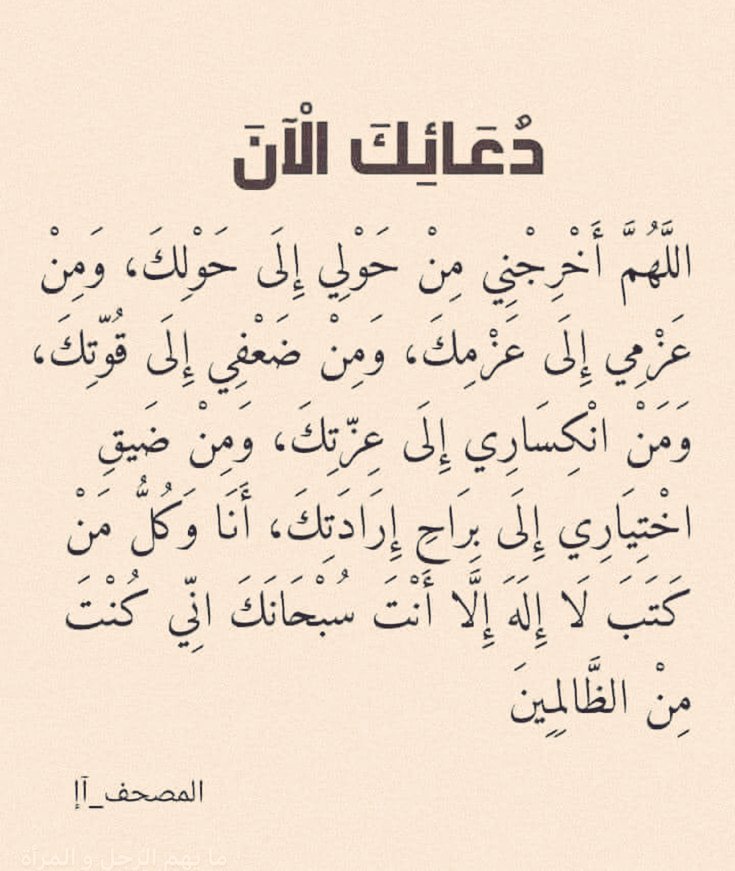 دُعَائِكَ الْآنَ
اللَّهُمَّ أَخْرِجْنِي مِنْ حَوْلِي إِلَى حَوْلِكَ، وَمِنْ
عَزْمِي إِلَى عَزْمِكَ، وَمِنْ ضَعْفِي إِلَى قُوّتِكَ،
وَمَنْ انْكِسَارِي إِلَى عِزّتِكَ، وَمِنْ ضَيقِ
اخْتِيَارِي إِلَى بِرَاحِ إِرَادَتِكَ، أَنَا وَكُلُّ مَنْ
كَتَبَ لَا إِلَهَ إِلَّا أَنْتَ سُبْحَانَكَ انِّي كُنْتَ
مِنْ الظَّالِمِينَ
المصحف_آإ
ما يهم الرجل و المرأة